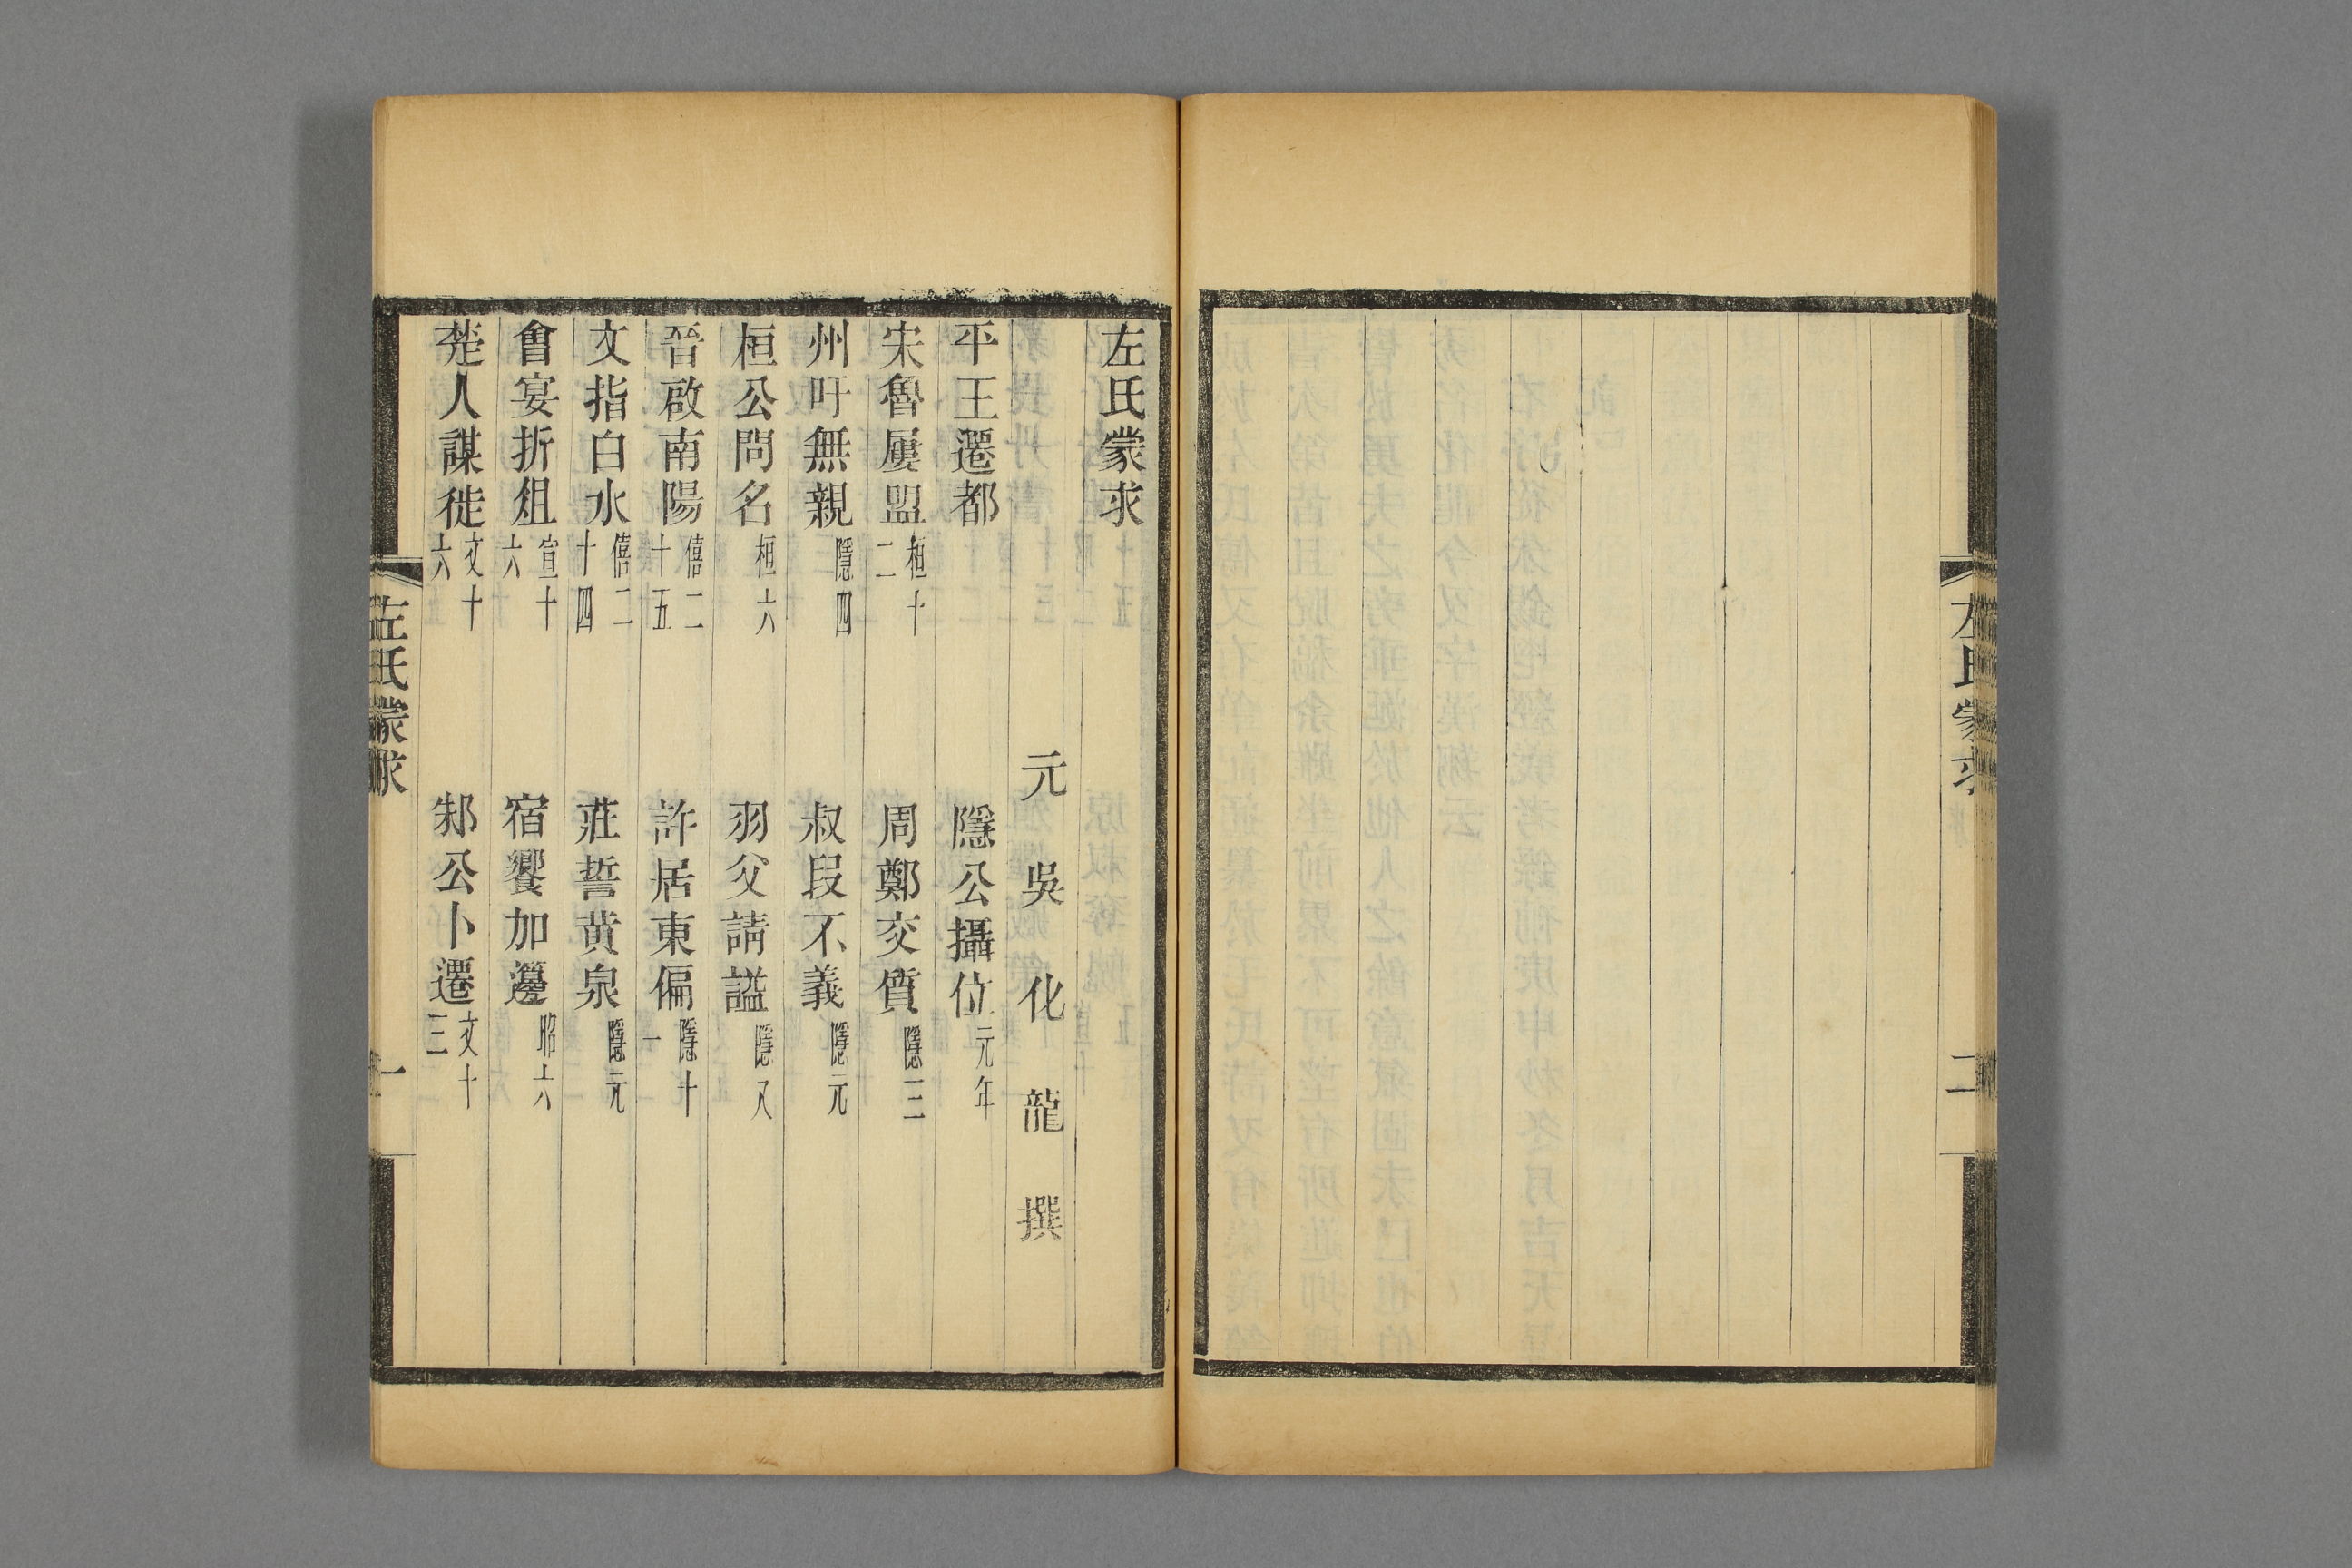 左氏蒙求
元吳化龍撰
平王遷都　隱公攝位元年
宋魯屢盟桓十二　周鄭交質隱三
州吁無親隱四　叔段不義隱元
桓公問名桓六　羽父請謚隱又
晉啟南陽僖二十五　許居東偏隱十一
文指白水僖二十四　莊誓黃泉隱元
會宴折俎宣十六　宿饗加籩昭六
楚人謀徙文十六　邾公卜遷文十三
左氏蒙求
一
左氏蒙求
二